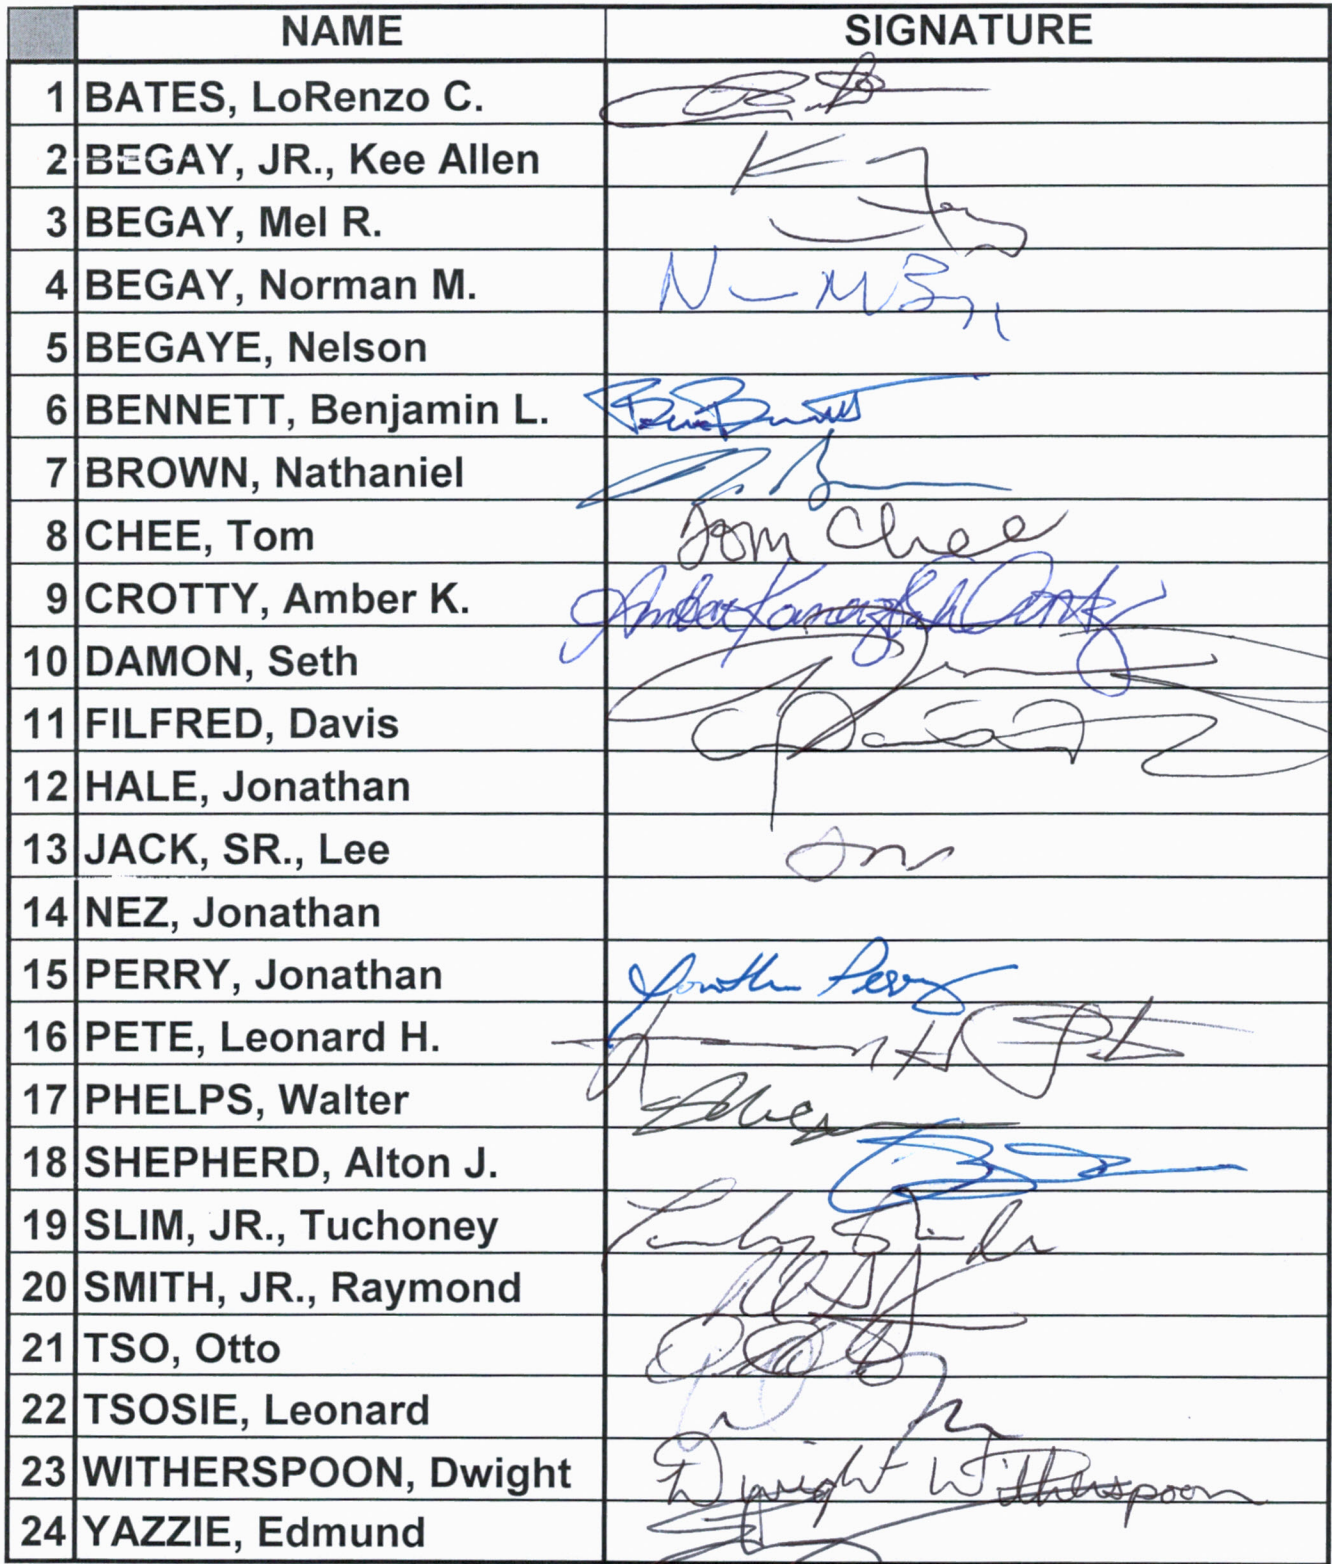 NAME SIGNATURE
1 BATES, LoRenzo C.
2 BEGAY, JR., Kee Allen
3 BEGAY, Mel R.
4 BEGAY, Norman M. N M B
5 BEGAYE, Nelson
6 BENNETT, Benjamin L. Ben Bennett
7 BROWN, Nathaniel
8 CHEE, Tom Tom Chee
9 CROTTY, Amber K. Amber Kanazbah Crotty
10 DAMON, Seth
11 FILFRED, Davis
12 HALE, Jonathan
13 JACK, SR., Lee
14 NEZ, Jonathan
15 PERRY, Jonathan Jonathan Perry
16 PETE, Leonard H.
17 PHELPS, Walter
18 SHEPHERD, Alton J.
19 SLIM, JR., Tuchoney
20 SMITH, JR., Raymond
21 TSO, Otto
22 TSOSIE, Leonard
23 WITHERSPOON, Dwight Dwight Witherspoon
24 YAZZIE, Edmund